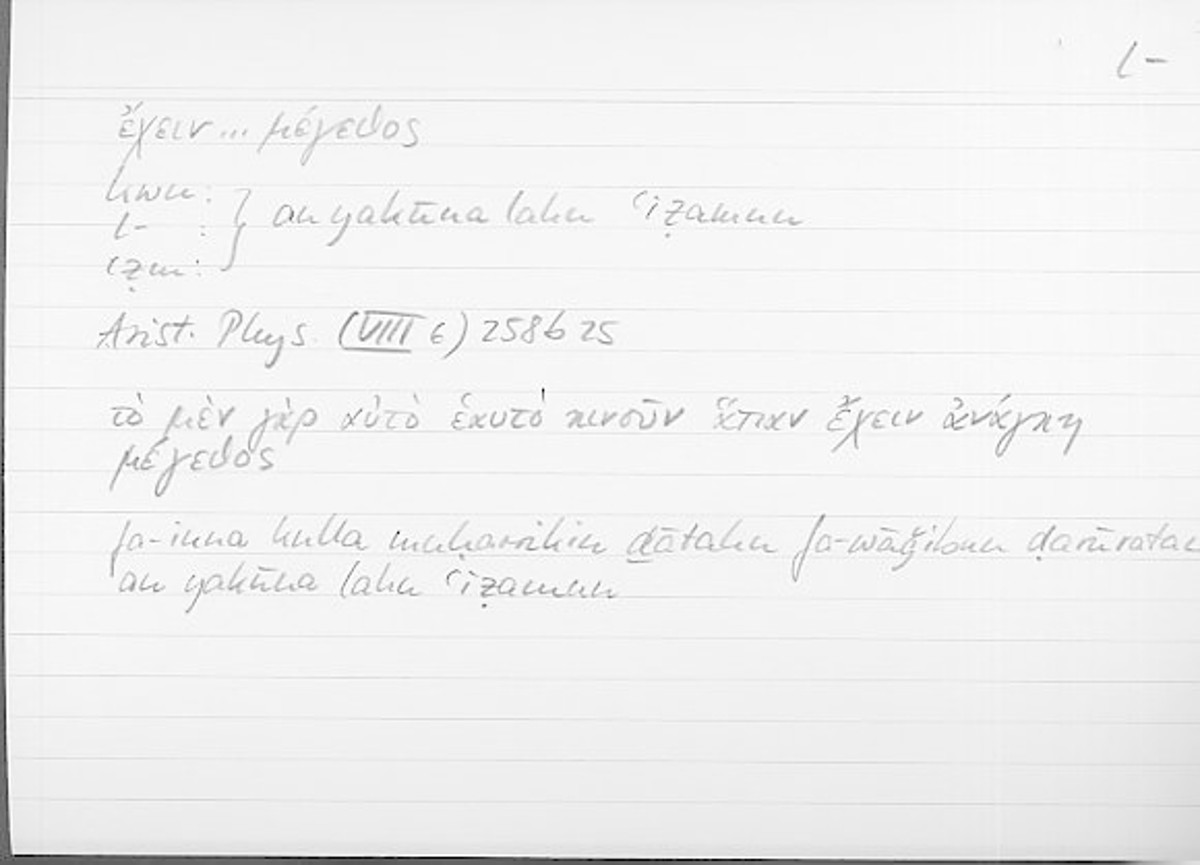 l-
ἔχειν... μέγεθος
kwn:
l- : } an yakūna lahu ʿiẓamun
ʿẓm:
Arist. Phys. (VIII 6) 258b25
τὸ μὲν γὰρ αὐτὸ ἑαυτὸ κινοῦν ἅπαν ἔχειν ἀνάγκη
μέγεθος
fa-inna kulla muḥarrikin ḏātahu fa-wāǧibun ḍarūratan
an yakūna lahu ʿiẓamun